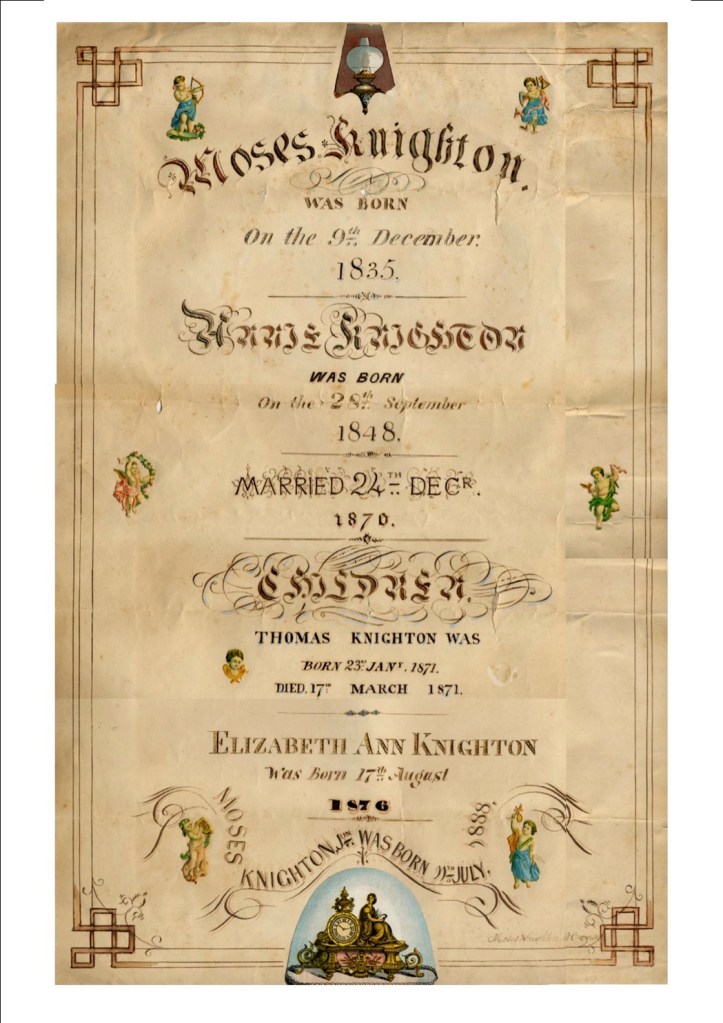 Moses Knighton.
WAS BORN
On the 9th December.
1835.
ANNIE KNIGHTON
WAS BORN
On the 28th September
1848.
MARRIED 24TH DECR.
1870.
CHILDREN.
THOMAS KNIGHTON WAS
BORN 23RD JANY. 1871.
DIED. 17TH MARCH 1871.
ELIZABETH ANN KNIGHTON
Was Born 17th August
1876
MOSES KNIGHTON, JUN. WAS BORN JULY, 1888.
Moses Knighton